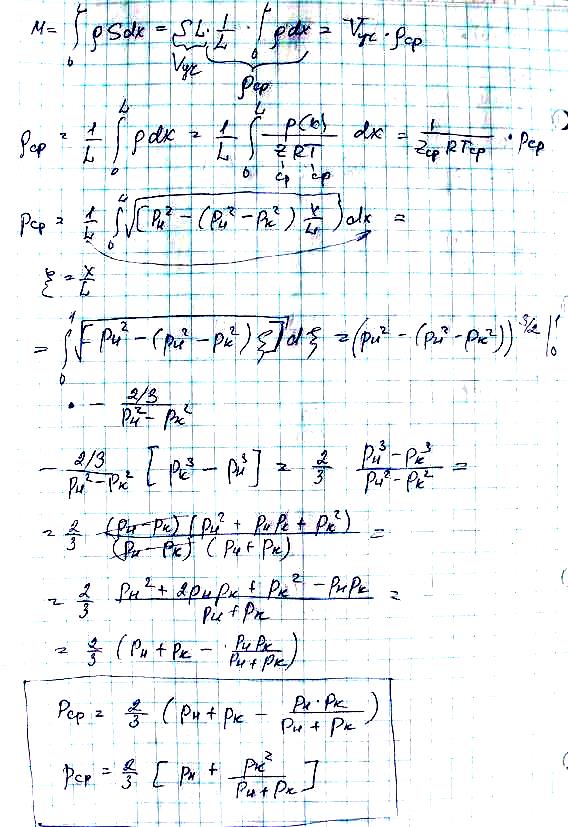 M = ∫₀ᴸ ρSdx = SL · 1/L · ∫₀ᴸ ρdx = Vуч · ρср
Vуч
ρср
ρср = 1/L ∫₀ᴸ ρdx = 1/L ∫₀ᴸ p(x)/(zср RTср) dx = 1/(zср RTср) · pср
pср = 1/L ∫₀ᴸ √[pн² − (pн² − pк²) x/L] dx =
ξ = x/L
= ∫₀¹ √[pн² − (pн² − pк²) ξ] dξ = (pн² − (pн² − pк²))^3/2 |₀¹
· − (2/3)/(pн² − pк²)
− (2/3)/(pн² − pк²) [pк³ − pн³] = 2/3 (pн³ − pк³)/(pн² − pк²) =
= 2/3 (pн − pк)(pн² + pн pк + pк²)/((pн − pк)(pн + pк)) =
= 2/3 (pн² + 2pн pк + pк² − pн pк)/(pн + pк) =
= 2/3 (pн + pк − pн pк/(pн + pк))
Pср = 2/3 (pн + pк − pн · pк/(pн + pк))
pср = 2/3 [pн + pк²/(pн + pк)]